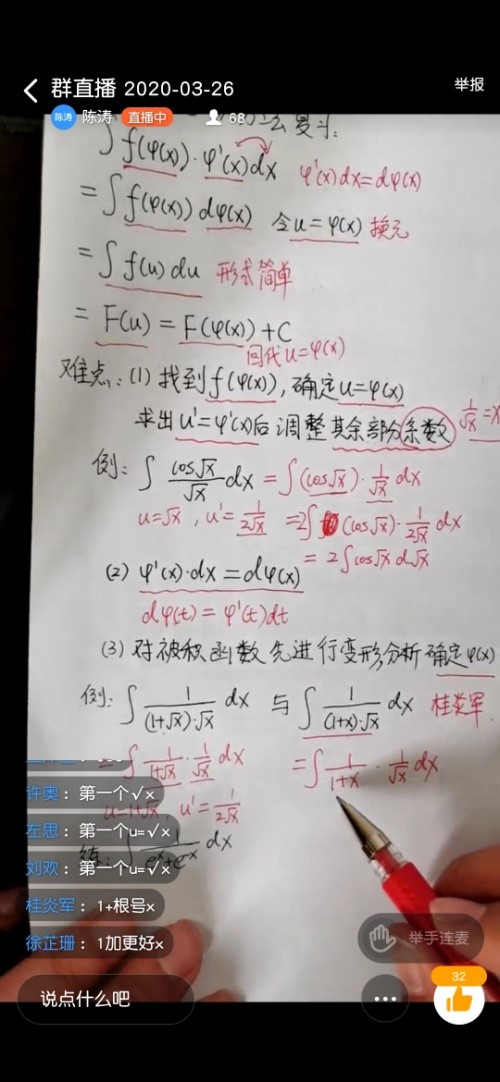 群直播 2020-03-26
举报
陈涛 陈涛 直播中 68
∫ f(φ(x))·φ'(x)dx φ'(x)dx=dφ(x)
= ∫ f(φ(x)) dφ(x) 令u=φ(x) 换元
= ∫ f(u) du 形式简单
= F(u) = F(φ(x))+C
回代u=φ(x)
难点:(1) 找到f(φ(x)),确定u=φ(x)
求出u'=φ'(x)后调整其余部分系数 1/√x
例: ∫ cos√x/√x dx = ∫(cos√x)·1/√x dx
u=√x, u'=1/2√x =2∫(cos√x)·1/2√x dx
= 2∫cos√x d√x
(2) φ'(x)·dx=dφ(x)
dφ(t)=φ'(t)dt
(3) 对被积函数先进行变形分析确定φ(x)
例: ∫ 1/(1+√x)·√x dx 与 ∫ 1/(1+x)·√x dx 桂炎军
∫ 1/1+√x · 1/√x dx = ∫ 1/1+x · 1/√x dx
u=1+√x, u'=1/2√x
许奥:第一个√x
左思:第一个u=√x
练: ∫ 1/e^x+e^-x dx
刘欢:第一个u=√x
桂炎军:1+根号x
徐芷珊:1加更好x
举手连麦
32
说点什么吧